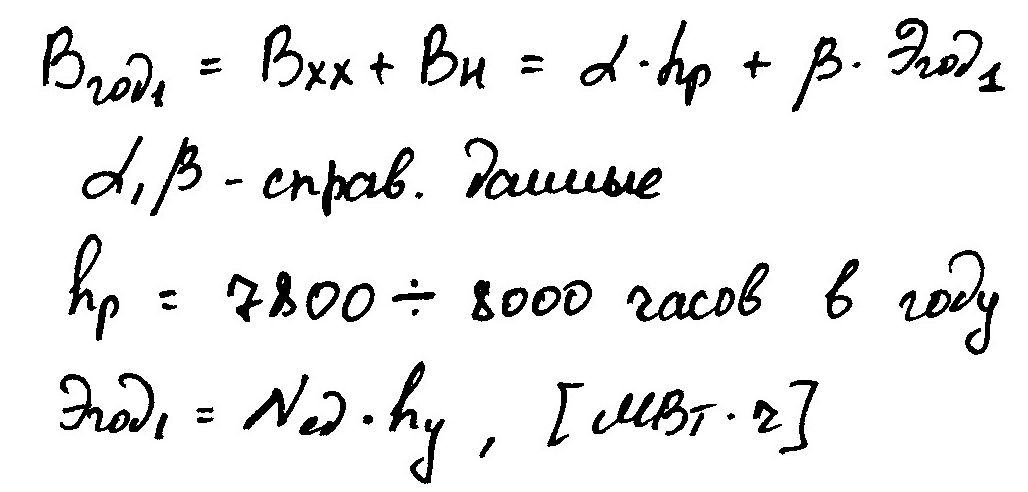 Bгод₁ = Bxx + Bн = α · hp + β · Эгод₁
α, β - справ. данные
hp = 7800 ÷ 8000 часов в году
Эгод₁ = Nед · hy , [МВт · ч]